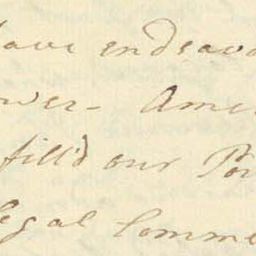 have endeavo
wer - Ame
fill'd our Po
legal Comme